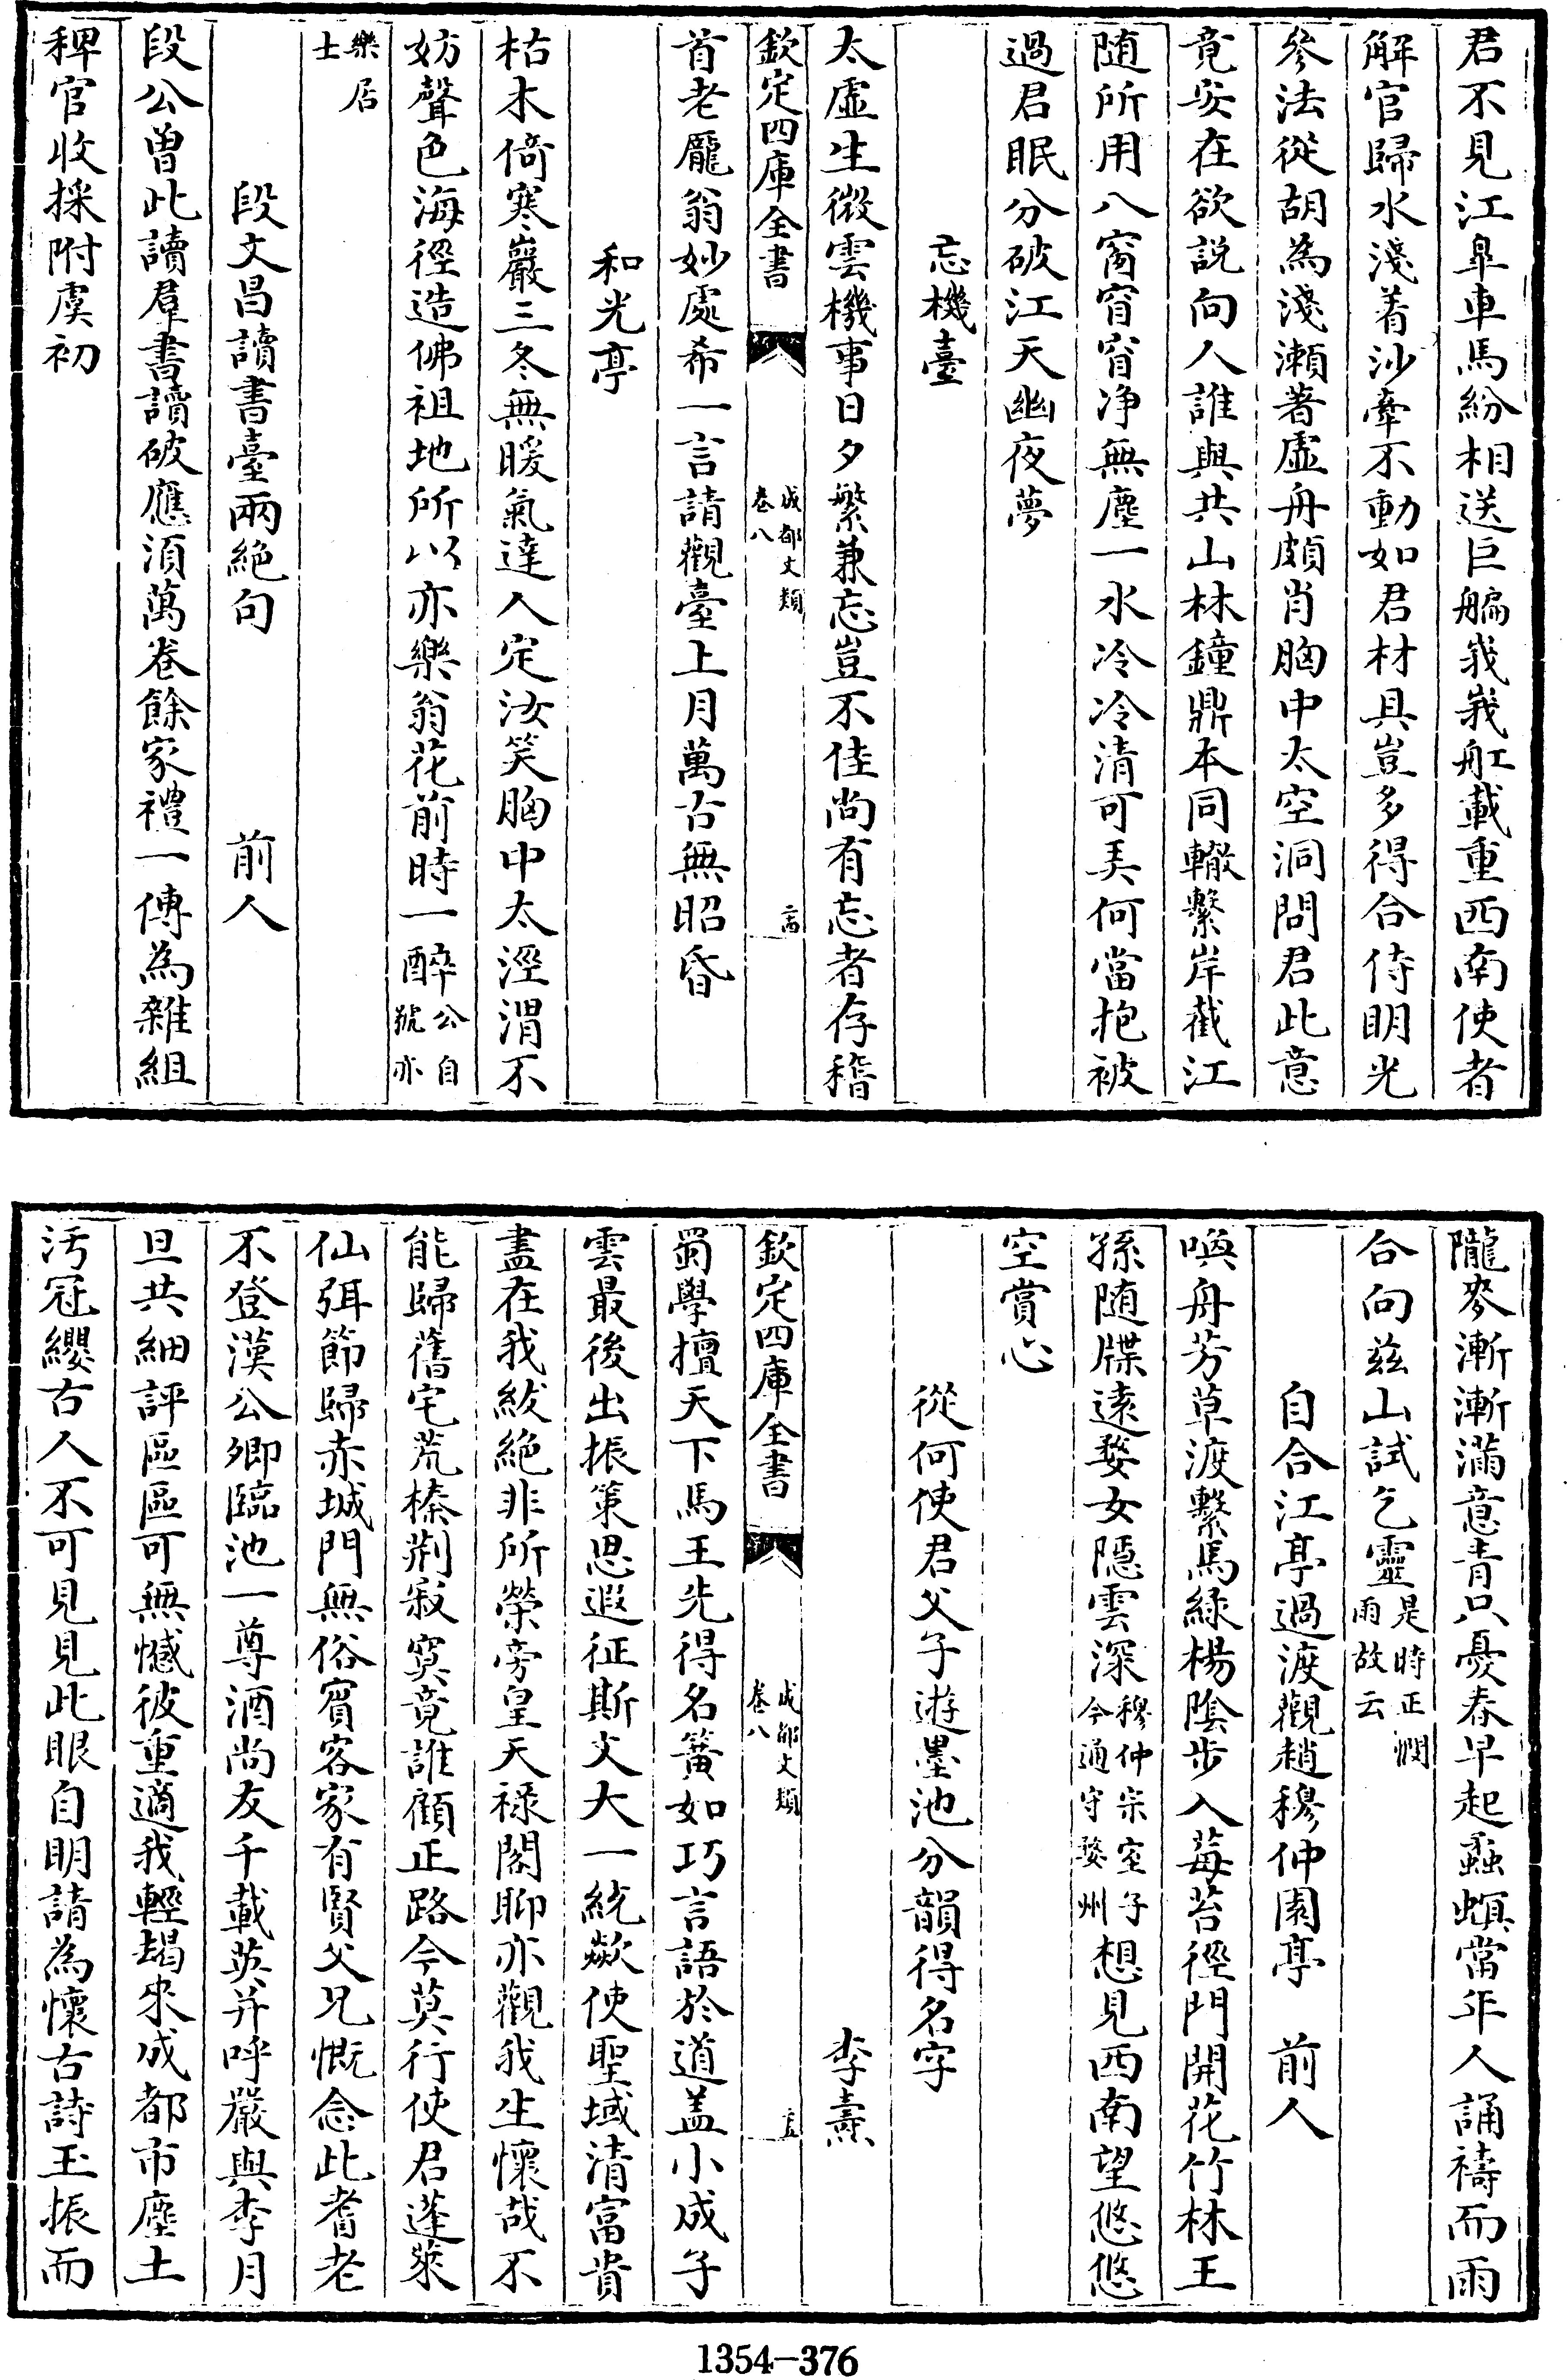 君不見江臯車馬紛相送巨艑峩峩舡載重西南使者
解官歸水淺着沙牽不動如君材具豈多得合侍明光
參法從胡為淺瀨著虛舟頗肖胸中太空洞問君此意
竟安在欲説向人誰與共山林鐘鼎本同轍繫岸截江
随所用八窗窅窅净無塵一水冷冷清可弄何當抱被
過君眠分破江天幽夜夢
忘機臺
太虛生微雲機事日夕繁兼忘豈不佳尚有忘者存稽
欽定四庫全書
成都文類
卷八
首老龎翁妙處希一言請觀臺上月萬古無昭昏
和光亭
枯木倚寒巖三冬無暖氣達人定汝笑胸中太涇渭不
妨聲色海徑造佛祖地所以亦樂翁花前時一醉公自
號亦
樂居
士
段文昌讀書臺兩絶句 前人
段公曽此讀羣書讀破應湏萬卷餘家禮一傳為雜組
稗官收採附虞初
隴麥漸漸滿意青只憂春早起螽螟當年人誦禱而雨
合向兹山試乞靈是時正憫
雨故云
自合江亭過渡觀趙穆仲園亭 前人
喚舟芳草渡繫馬綠楊陰步入莓苔徑門開花竹林王
孫随牒遠婺女隱雲深穆仲宗室子
今通守婺州想見西南望悠悠
空賞心
從何使君父子遊墨池分韻得名字
李燾
欽定四庫全書
成都文類
卷八
蜀學擅天下馬王先得名簧如巧言語於道盖小成子
雲最後出振策思遐征斯文大一統歘使聖域清富貴
盡在我紱絶非所榮旁皇天禄閣聊亦觀我生懷哉不
能歸舊宅荒榛荆寂寞竟誰顧正路今莫行使君蓬萊
仙弭節歸赤城門無俗賓客家有賢父兄慨念此耆老
不登漢公卿臨池一尊酒尚友千載英并呼嚴與李月
旦共細評區區可無憾彼重適我輕朅來成都市塵土
汚冠纓古人不可見見此眼自明請為懷古詩玉振而
1354-376